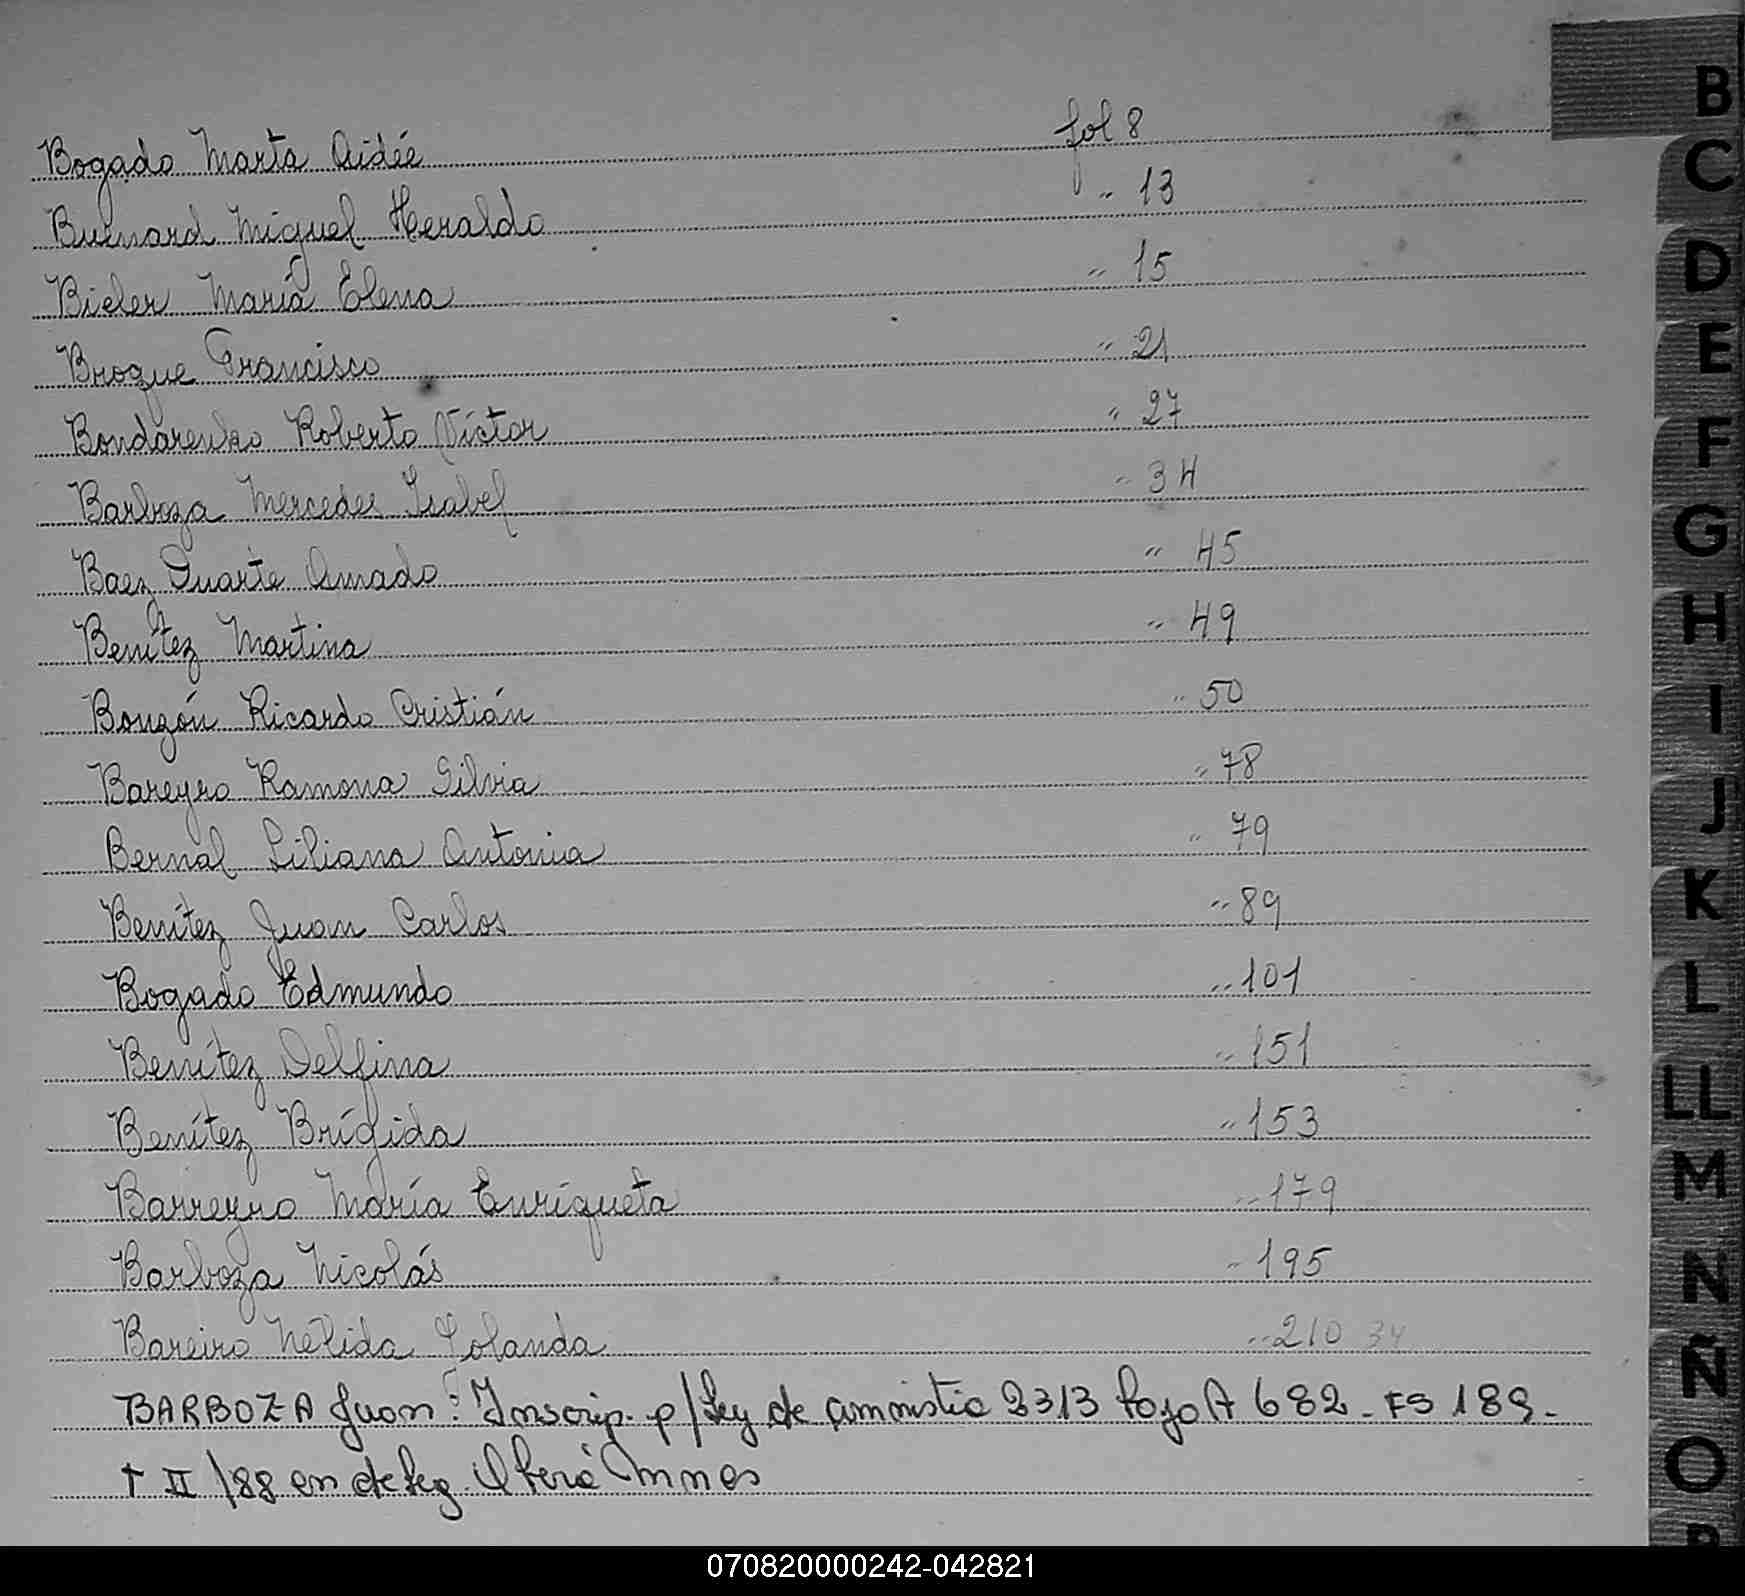 Bogado Marta Aidée fol 8
Buenard Miguel Heraldo " 13
Bieler María Elena " 15
Broque Francisco " 21
Bondarenko Roberto Víctor " 27
Barboza Mercedes Isabel " 34
Baez Duarte Amado " 45
Benítez Martina " 49
Bougón Ricardo Cristián " 50
Bareyro Ramona Silvia " 78
Bernal Liliana Antonia " 79
Benítez Juan Carlos " 89
Bogado Edmundo " 101
Benítez Delfina " 151
Benítez Brígida " 153
Barreyro María Enriqueta " 179
Barboza Nicolás " 195
Bareiro Nélida Yolanda " 210 34
BARBOZA Juan: Inscrip. p/ Ley de amnistia 2313 bajo A 682 - FS 189 -
T II /88 en deleg. Mnes
B
C
D
E
F
G
H
I
J
K
L
LL
M
N
Ñ
O
070820000242-042821